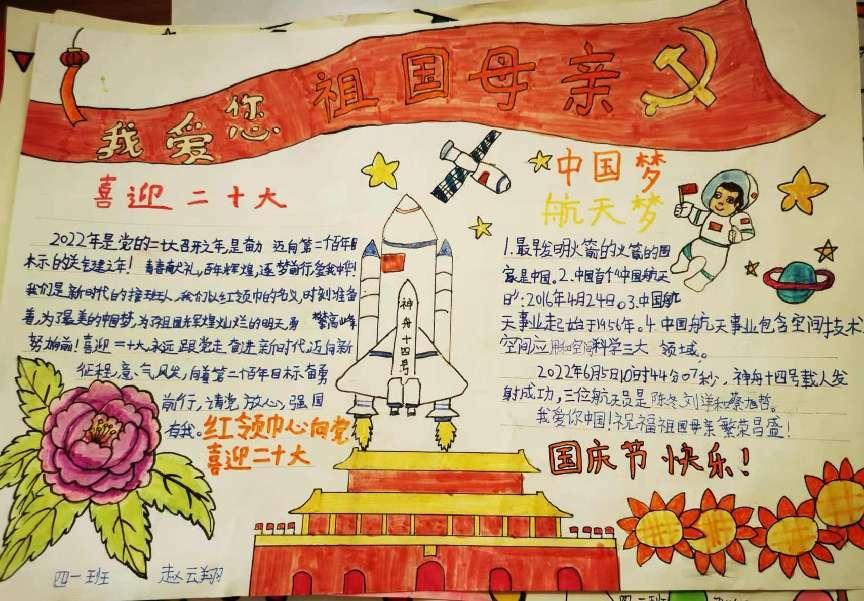 我爱您祖国母亲
喜迎二十大
2022年是党的二大召开之年,是奋 迈向第二个百年目
标示的关键建之年!青春献礼,百年辉煌,逐梦前行,爱我中华
我们是新时代的接班人,我们以红领巾的名义,时刻准备
着,为了最美的中国梦,为了祖国辉煌灿烂的明天,勇 攀高峰
努力向前!喜迎二十大,永远跟党走,奋进新时代,迈向新
征程,意气风发,向着第二个百年目标奋勇
前行,请党放心,强国
有我。
红领巾心向党
喜迎二十大
神舟十四号
中国梦
航天梦
1.最早发明火箭的火箭的国
家是中国。2.中国首个“中国航天
日”:2016年4月24日。3.中国航
天事业起始于1956年。4.中国航天事业包含空间技术
空间应用和空间科学三大 领域。
2022年6月5日10时44分07秒,神舟十四号载人发
射成功,三位航天员是陈冬、刘洋和蔡旭哲。
我爱你中国!祝福祖国母亲繁荣昌盛!
国庆节快乐!
四一班 赵云翔